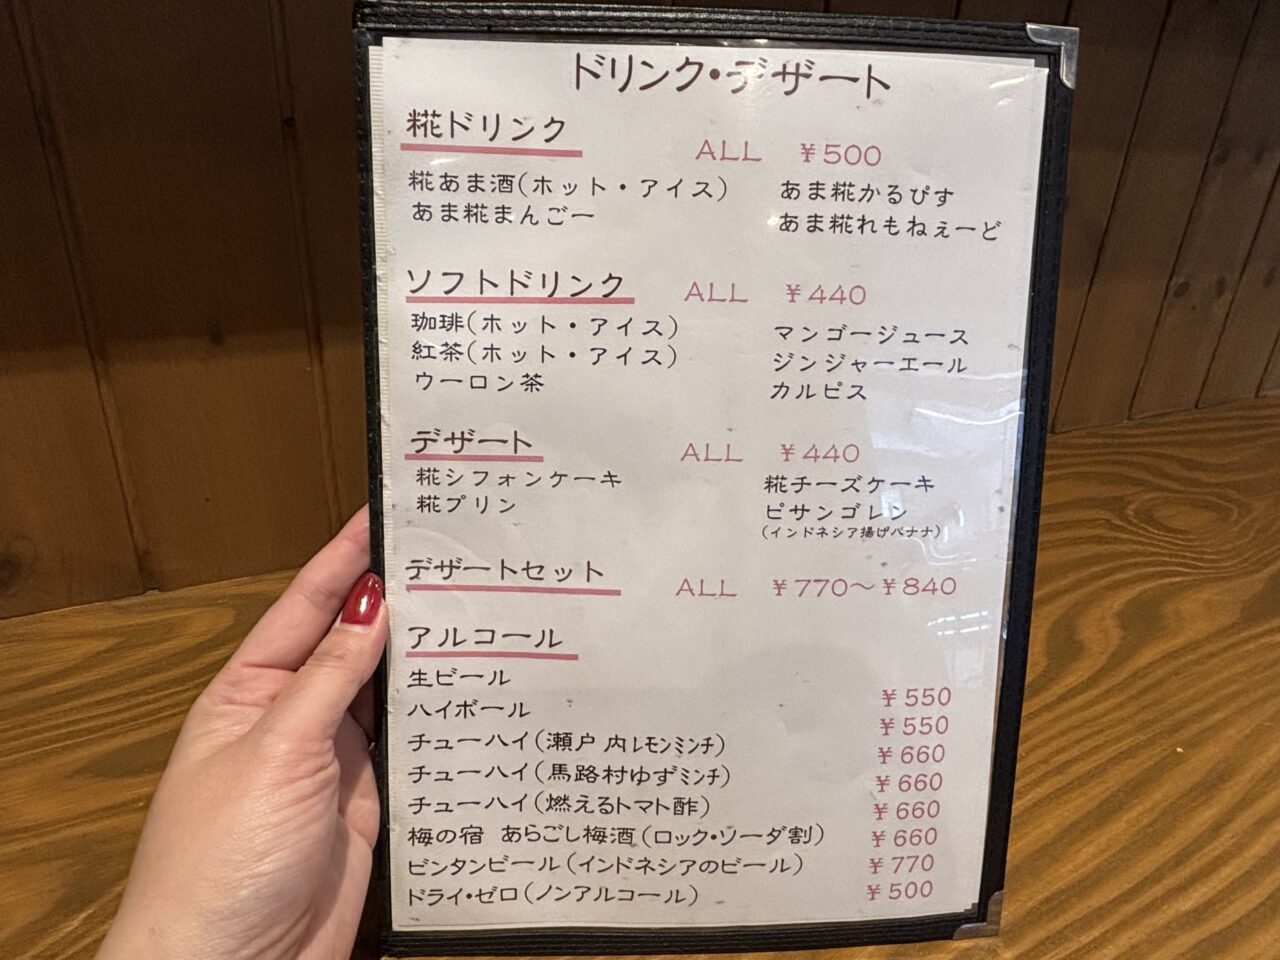 ドリンク・デザート
糀ドリンク ALL ¥500
糀あま酒(ホット・アイス) あま糀かるぴす
あま糀まんごー あま糀れもねぇーど
ソフトドリンク ALL ¥440
珈琲(ホット・アイス) マンゴージュース
紅茶(ホット・アイス) ジンジャーエール
ウーロン茶 カルピス
デザート ALL ¥440
糀シフォンケーキ 糀チーズケーキ
糀プリン ピサンゴレン
(インドネシア揚げバナナ)
デザートセット ALL ¥770～¥840
アルコール
生ビール ¥550
ハイボール ¥550
チューハイ(瀬戸内レモンミンチ) ¥660
チューハイ(馬路村ゆずミンチ) ¥660
チューハイ(燃えるトマト酢) ¥660
梅の宿 あらごし梅酒(ロック・ソーダ割) ¥660
ビンタンビール(インドネシアのビール) ¥770
ドライ・ゼロ(ノンアルコール) ¥500